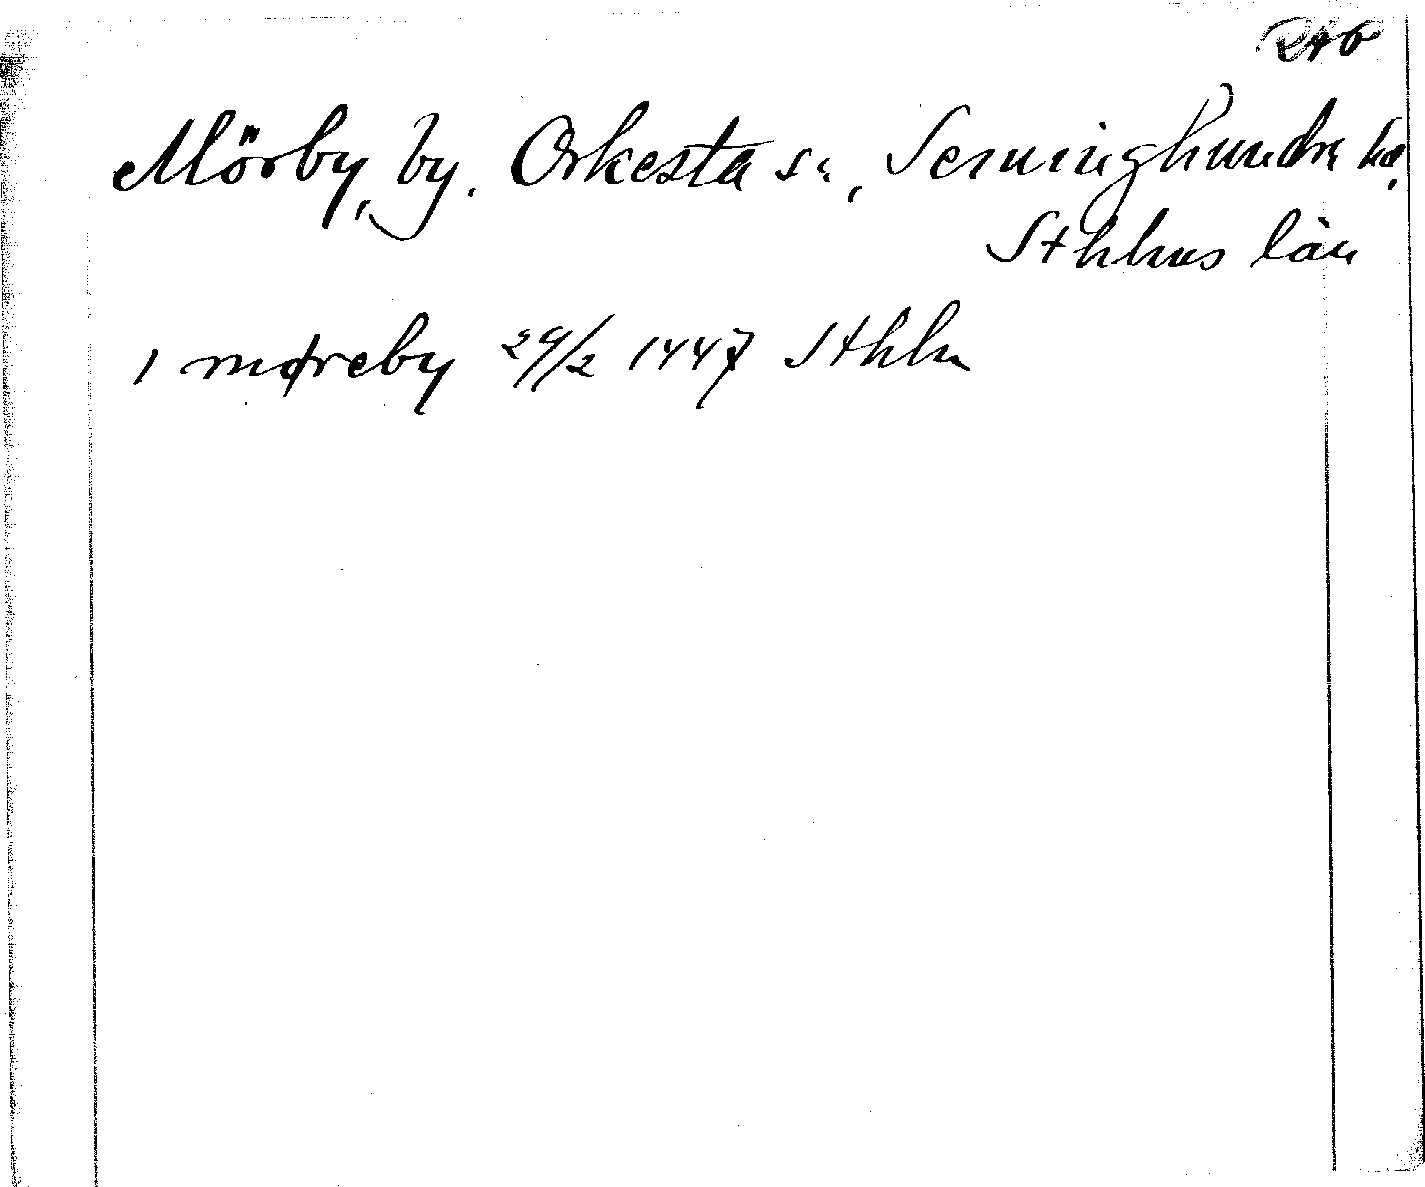 Mörby, by. Orkesta sn, Seminghundra hd,
Sthlms län
i møreby 29/2 1447 Sthlm